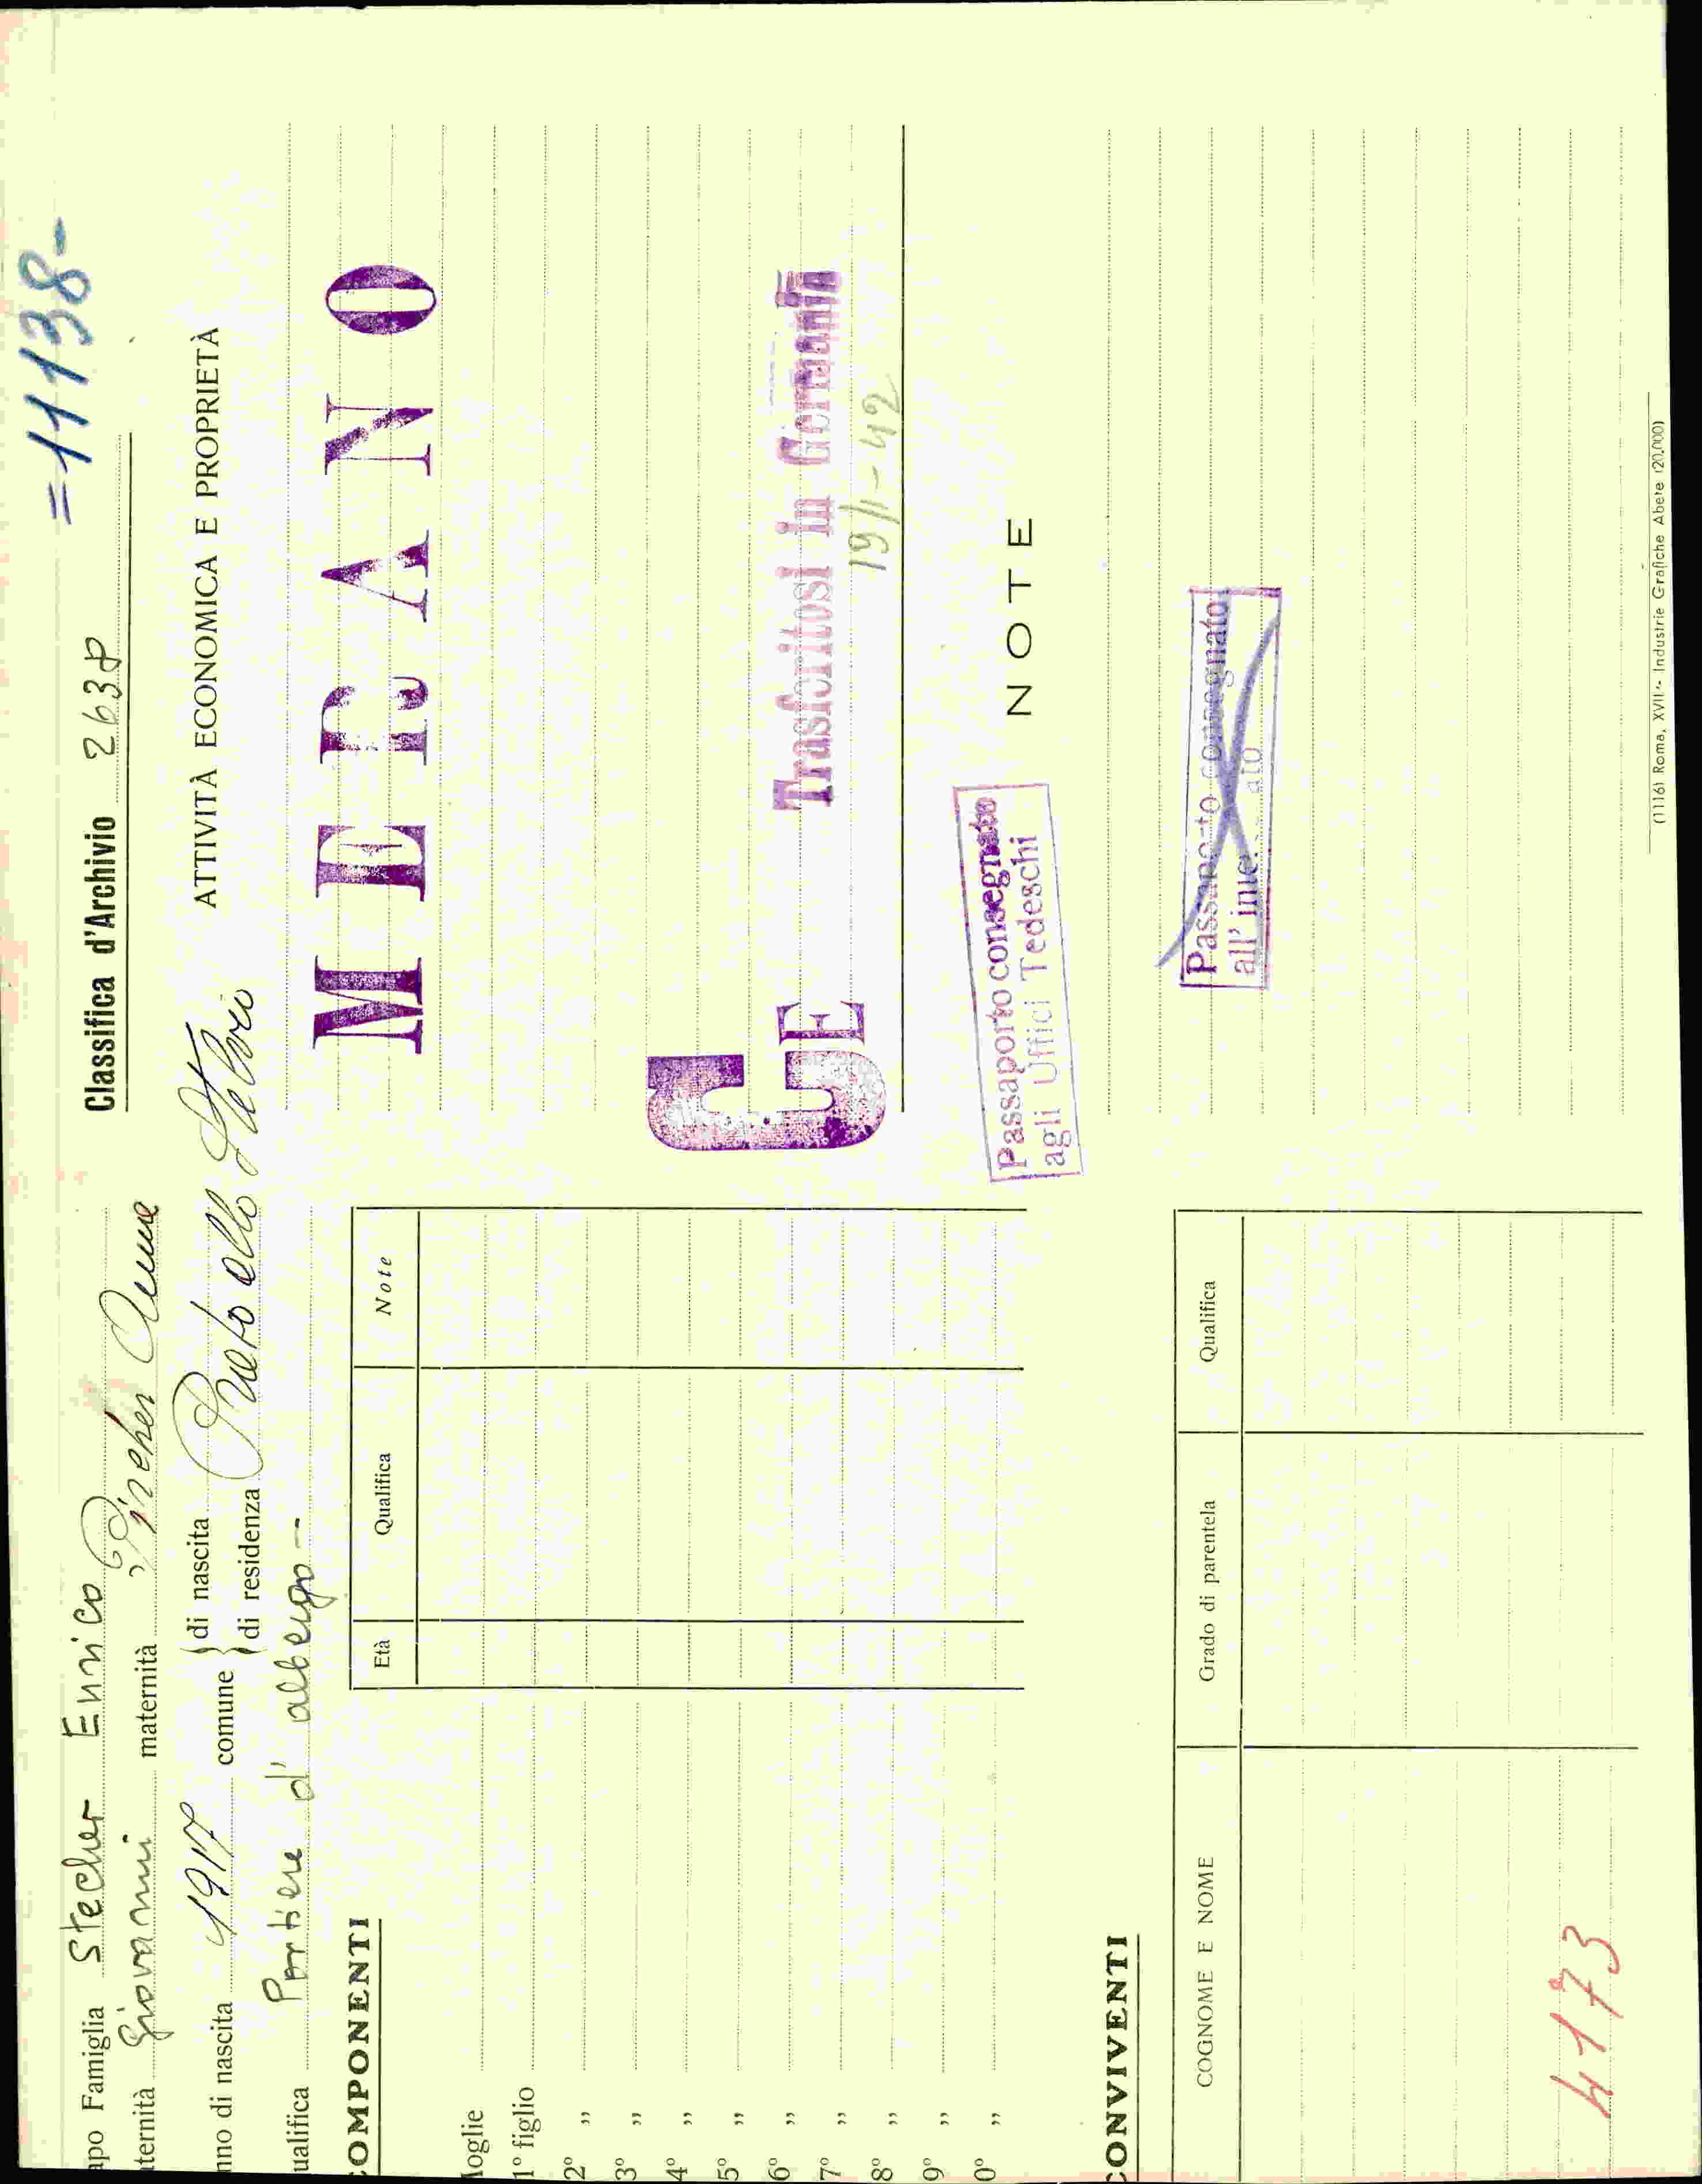 =11138-
Classifica d'Archivio 2638
apo Famiglia Stecher Enrico
ternità Giovanni maternità Pircher Anna
nno di nascita 1917 comune di nascita
di residenza Prato allo Stelvio
ualifica Portiere d'albergo -
ATTIVITÀ ECONOMICA E PROPRIETÀ
MERANO
OMPONENTI
Età Qualifica Note
oglie
1° figlio
2° "
3° "
4° "
5° "
6° "
7° "
8° "
9° "
0° "
GE
Trasferitosi in Germania
19/1-42
NOTE
Passaporto consegnato
agli Uffici Tedeschi
Passaporto consegnato
all'
ONVIVENTI
COGNOME E NOME Grado di parentela Qualifica
4173
(1116) Roma, XVII - Industrie Grafiche Abete (20.000)